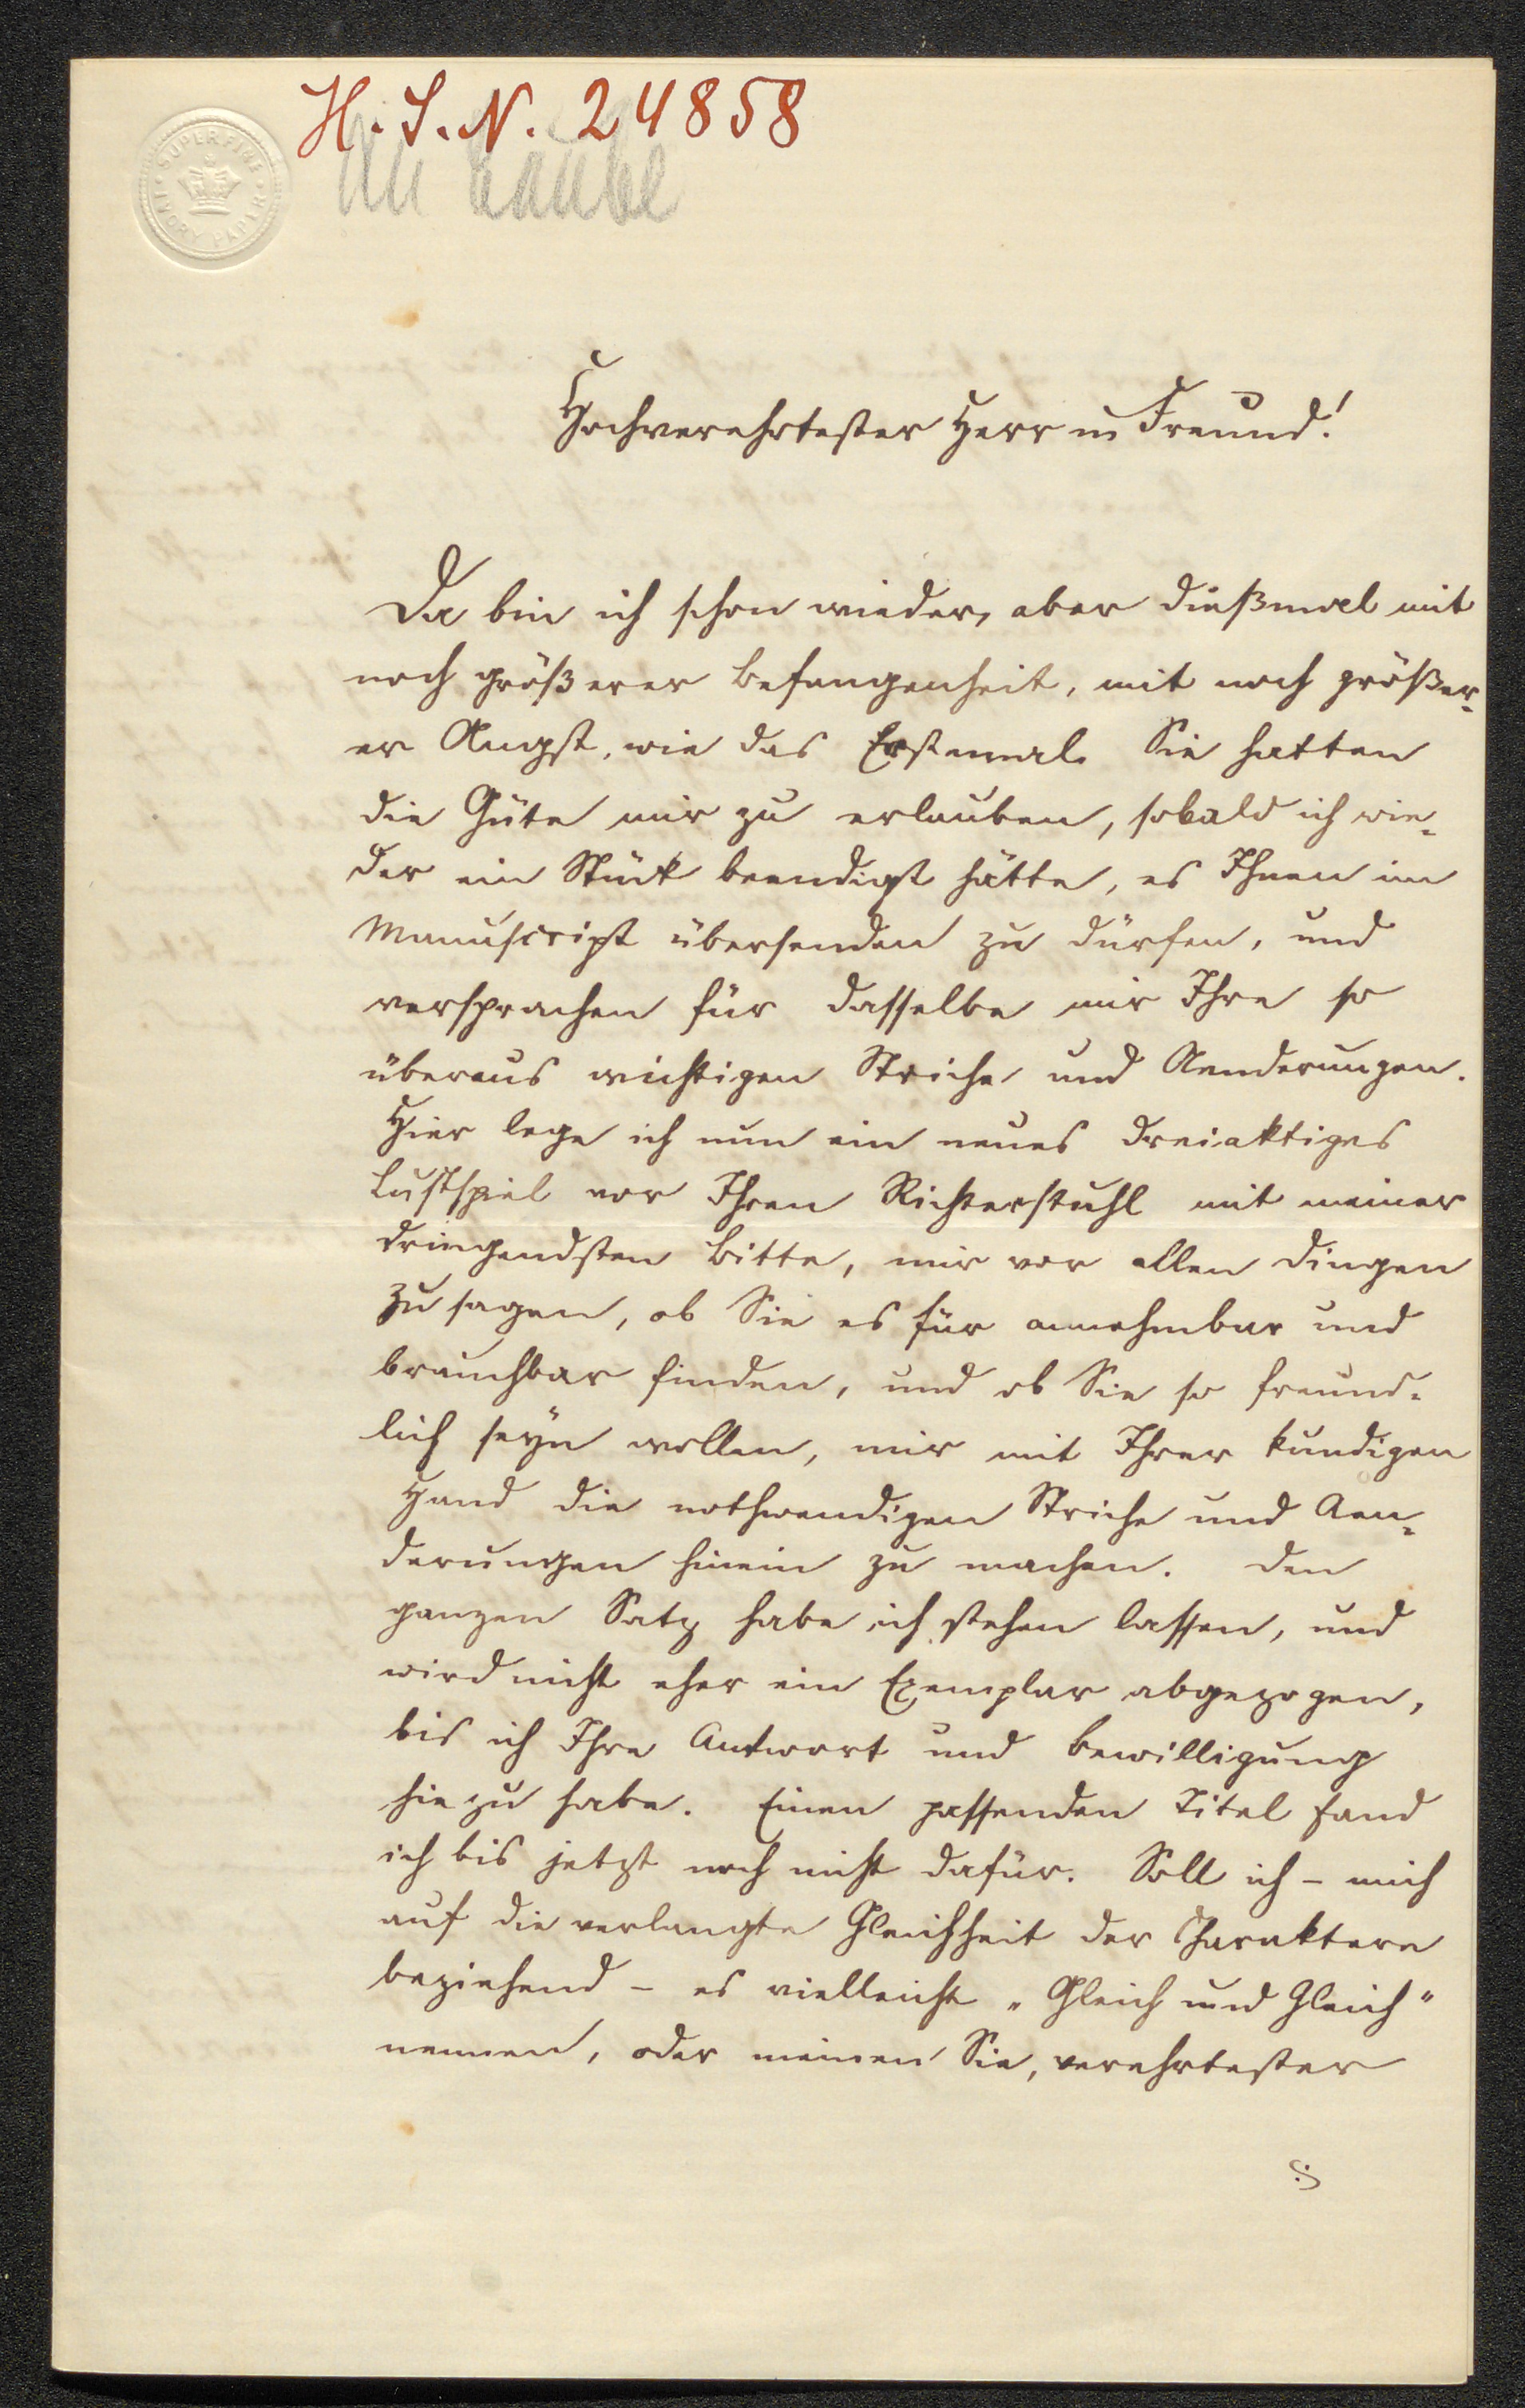 H. I. N. 24858
An Laube
SUPERFINE
IVORY PAPER
Hochverehrtester Herr u Freund!
Da bin ich schon wieder, aber dießmal mit
noch größerer Befangenheit, mit noch größer-
er Angst, wie das Erstemal. Sie hatten
die Güte mir zu erlauben, sobald ich wie-
der ein Stück beendigt hätte, es Ihnen im
Manuscript übersenden zu dürfen, und
versprachen für dasselbe mir Ihre so
überaus wichtigen Striche und Aenderungen.
Hier lege ich nun ein neues dreiaktiges
Lustspiel vor Ihren Richterstuhl mit meiner
dringendsten Bitte, mir vor allen Dingen
zu sagen, ob Sie es für annehmbar und
brauchbar finden, und ob Sie so freund-
lich seyn wollen, mir mit Ihrer kundigen
Hand die nothwendigen Striche und Aen-
derungen hinein zu machen. Den
ganzen Satz habe ich stehen lassen, und
wird nicht eher ein Exemplar abgezogen,
bis ich Ihre Antwort und Bewilligung
hiezu habe. Einen passenden Titel fand
ich bis jetzt noch nicht dafür. Soll ich – mich
auf die verlangte Gleichheit der Charaktere
beziehend – es vielleicht „Gleich und Gleich"
nennen, oder meinen Sie, verehrtester